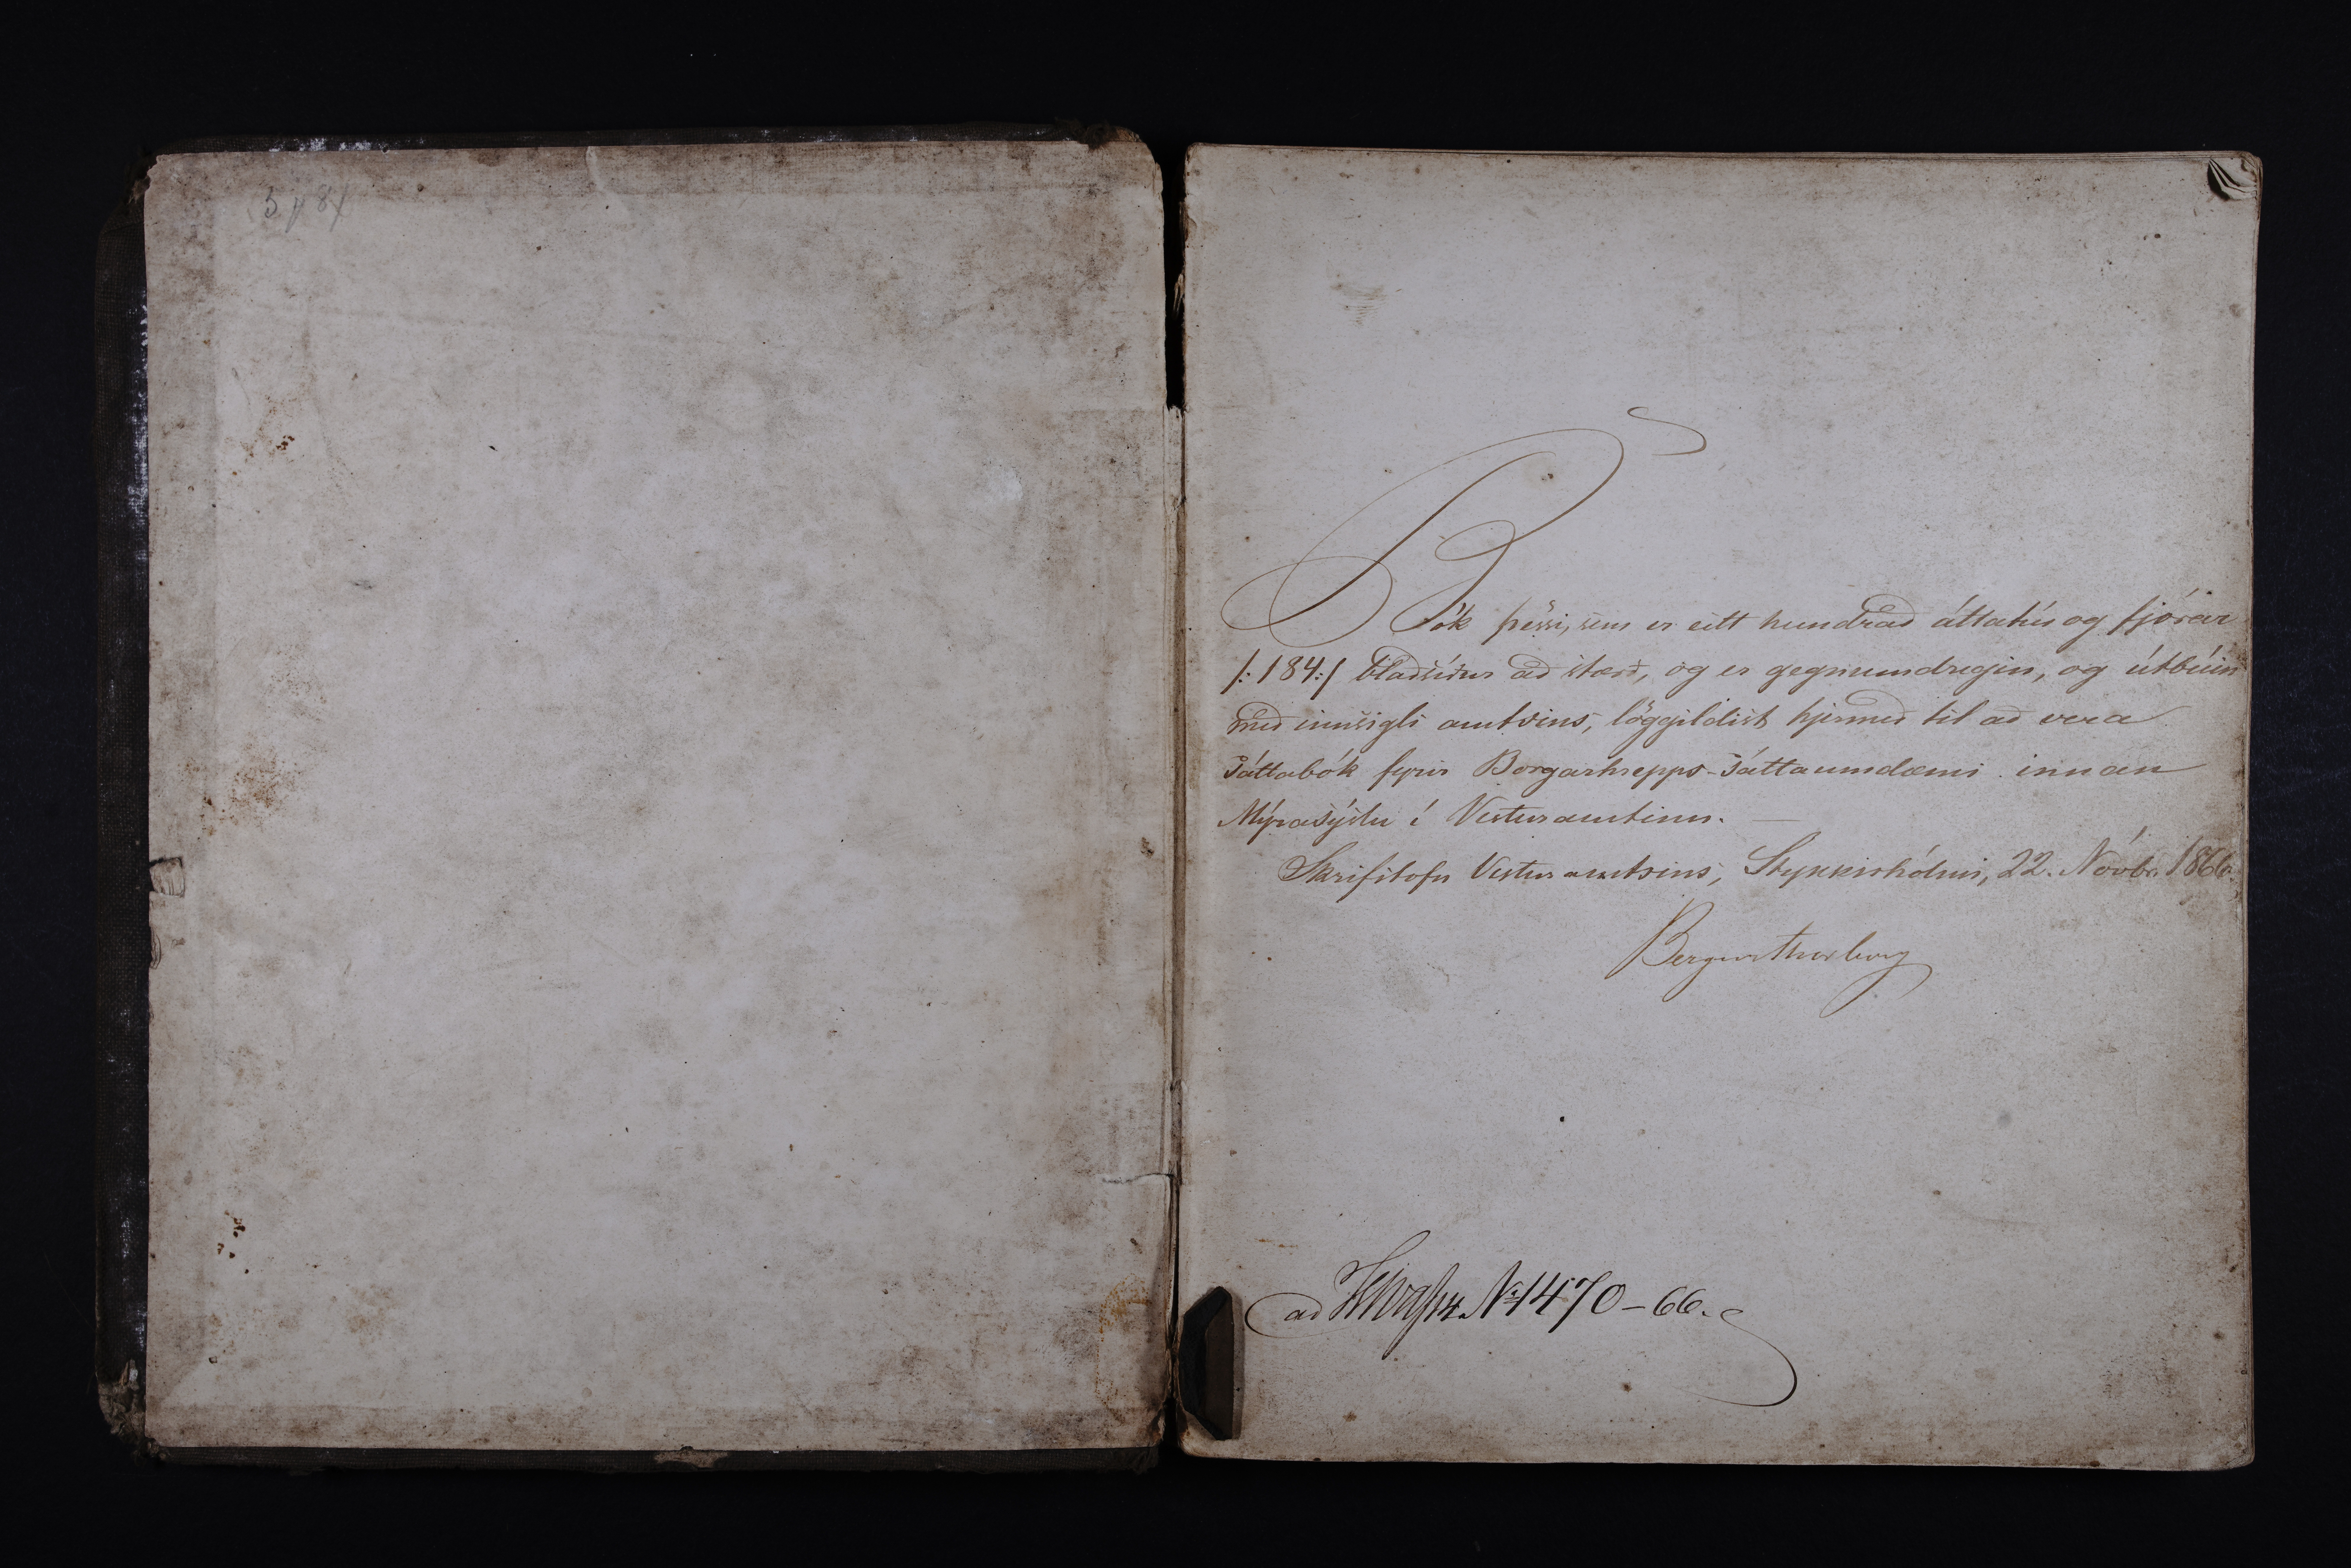 Bók þessi, sem er eitt hundrað áttatíu og fjórar
/:184:/ blaðsíður að stærð, og er gegnumdregin, og útbúin
með innsigli amtsins, löggildist hjermeð til að vera
Sáttabók fyrir Borgarhrepps-Sáttaumdæmi innan
Mýrasýslu í Vesturamtinu. —
Skrifstofu Vesturamtsins, Stykkishólmi, 22. Nóvbr. 1866.
Bergur Thorberg
ad № 1470-66.